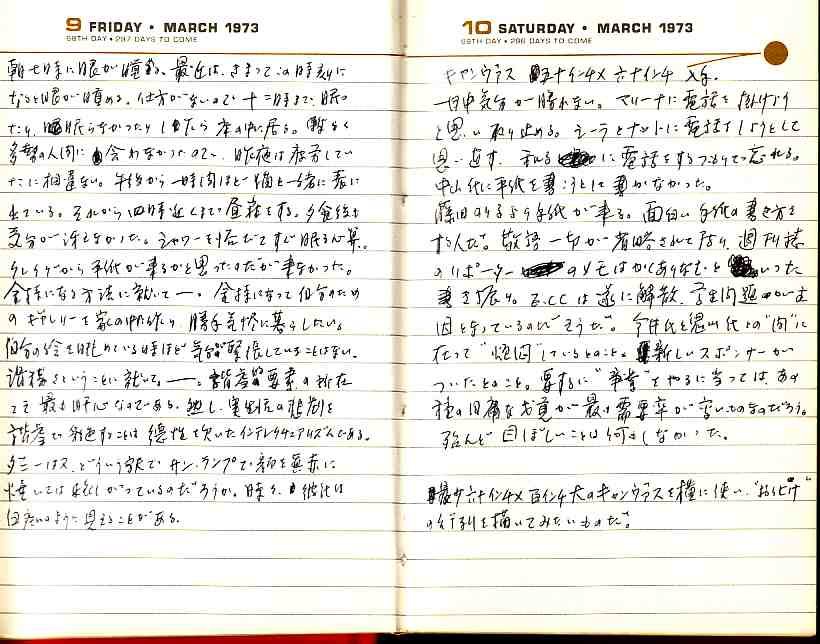 9 FRIDAY • MARCH 1973
68TH DAY • 297 DAYS TO COME
朝七時に眼が醒める。最近は、きまってこの時刻に
なると眼が醒める。仕方がないので十二時まで、眠っ
たり、眠らなかったりしながら床の中に居る。
多勢の人間に会わなかったので、昨夜は
たに相違ない。午後から一時間ほど猫と一緒に表に
出ている。それから四時近くまで昼寝をする。夕食後も
気分が冴えなかった。シャワーを浴びてすぐ眠る
から手紙が来るかと思ったのだが来なかった。
金持になる方法に就いて一。金持になって自分のため
のギャラリーを家の中に作り、勝手気侭に暮らしたい。
自分の絵を眺めている時ほど気分が緊張していることはない。
諧謔ということに就いて。一。諧謔的要素の所在
こそ最も肝心なのである。然し、実生活の悲劇を
諧謔で発色することは徳性を欠いたインテレクチュアリズムである。
タミーはス、どういう訳でサン・ランプで顔を真赤に
焼いては嬉しがっているのだろうか。時々、彼女は
白痴のように見えることがある。
10 SATURDAY • MARCH 1973
69TH DAY • 296 DAYS TO COME
キャンヴァス 五十インチ×六十インチ
一日中気分が勝れない。マリーナに電話を掛けよう
と思い取り止める。シーラとナットに電話をしようとして
思い直す。に電話をするつもりで忘れる。
中山氏に手紙を書こうとして書かなかった。
篠田のりるより手紙が来る。面白い手紙の書き方を
する人だ。敬語一切が省略されており、週刊誌
のリポーターのメモはかくありなむといった
書き振り。は遂に解散。学生問題が主
因となっているのだそうだ。今井氏と氏との"間"に
在って "怪聞" しているとのこと。新しいスポンサーが
ついたとのこと。要するに "事業" をやるに当っては、ある
種の旧痛な感覚が最も需要率が高いものなのだろう。
殆んど目ぼしいことは何もしなかった。
最少六十インチ×百インチ大のキャンヴァスを横に使い、"お化け"
の行列を描いてみたいものだ。